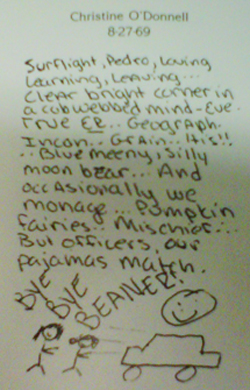 Christine O'Donnell
8-27-69
Sunflight, Pedro, Loving
Learning, Leaving...
Clear bright corner in
a cubwebbed mind-Eve.
True ER.. Geograph.
Incon.. Grain.. His!!
..Blue meeny, Silly
moon bear... And
occasionally we
monage... Pumpkin
fairies.. Mischief...
But officers, our
pajamas match.
BYE
BYE
BEAVER!